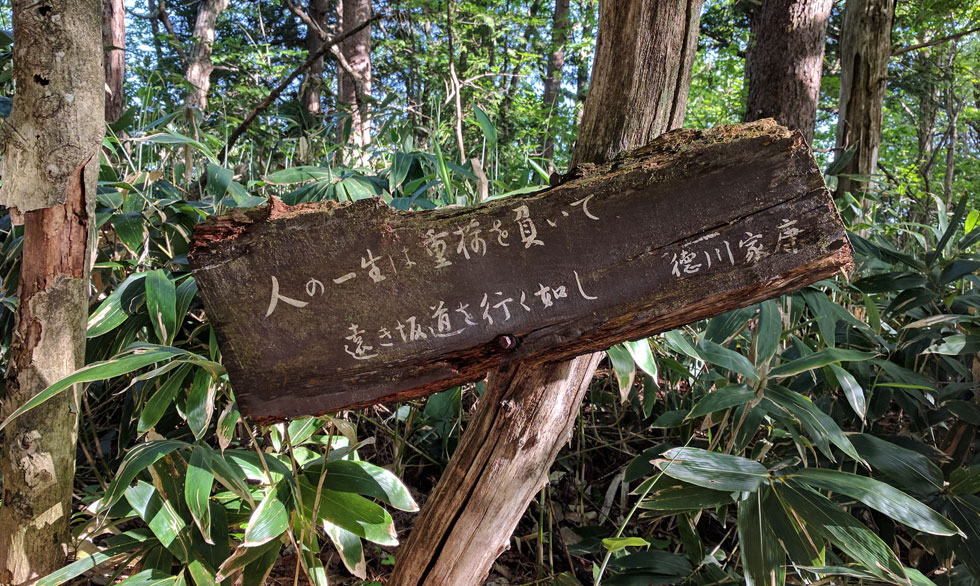 人の一生は重荷を負いて
遠き坂道を行く如し
徳川家康